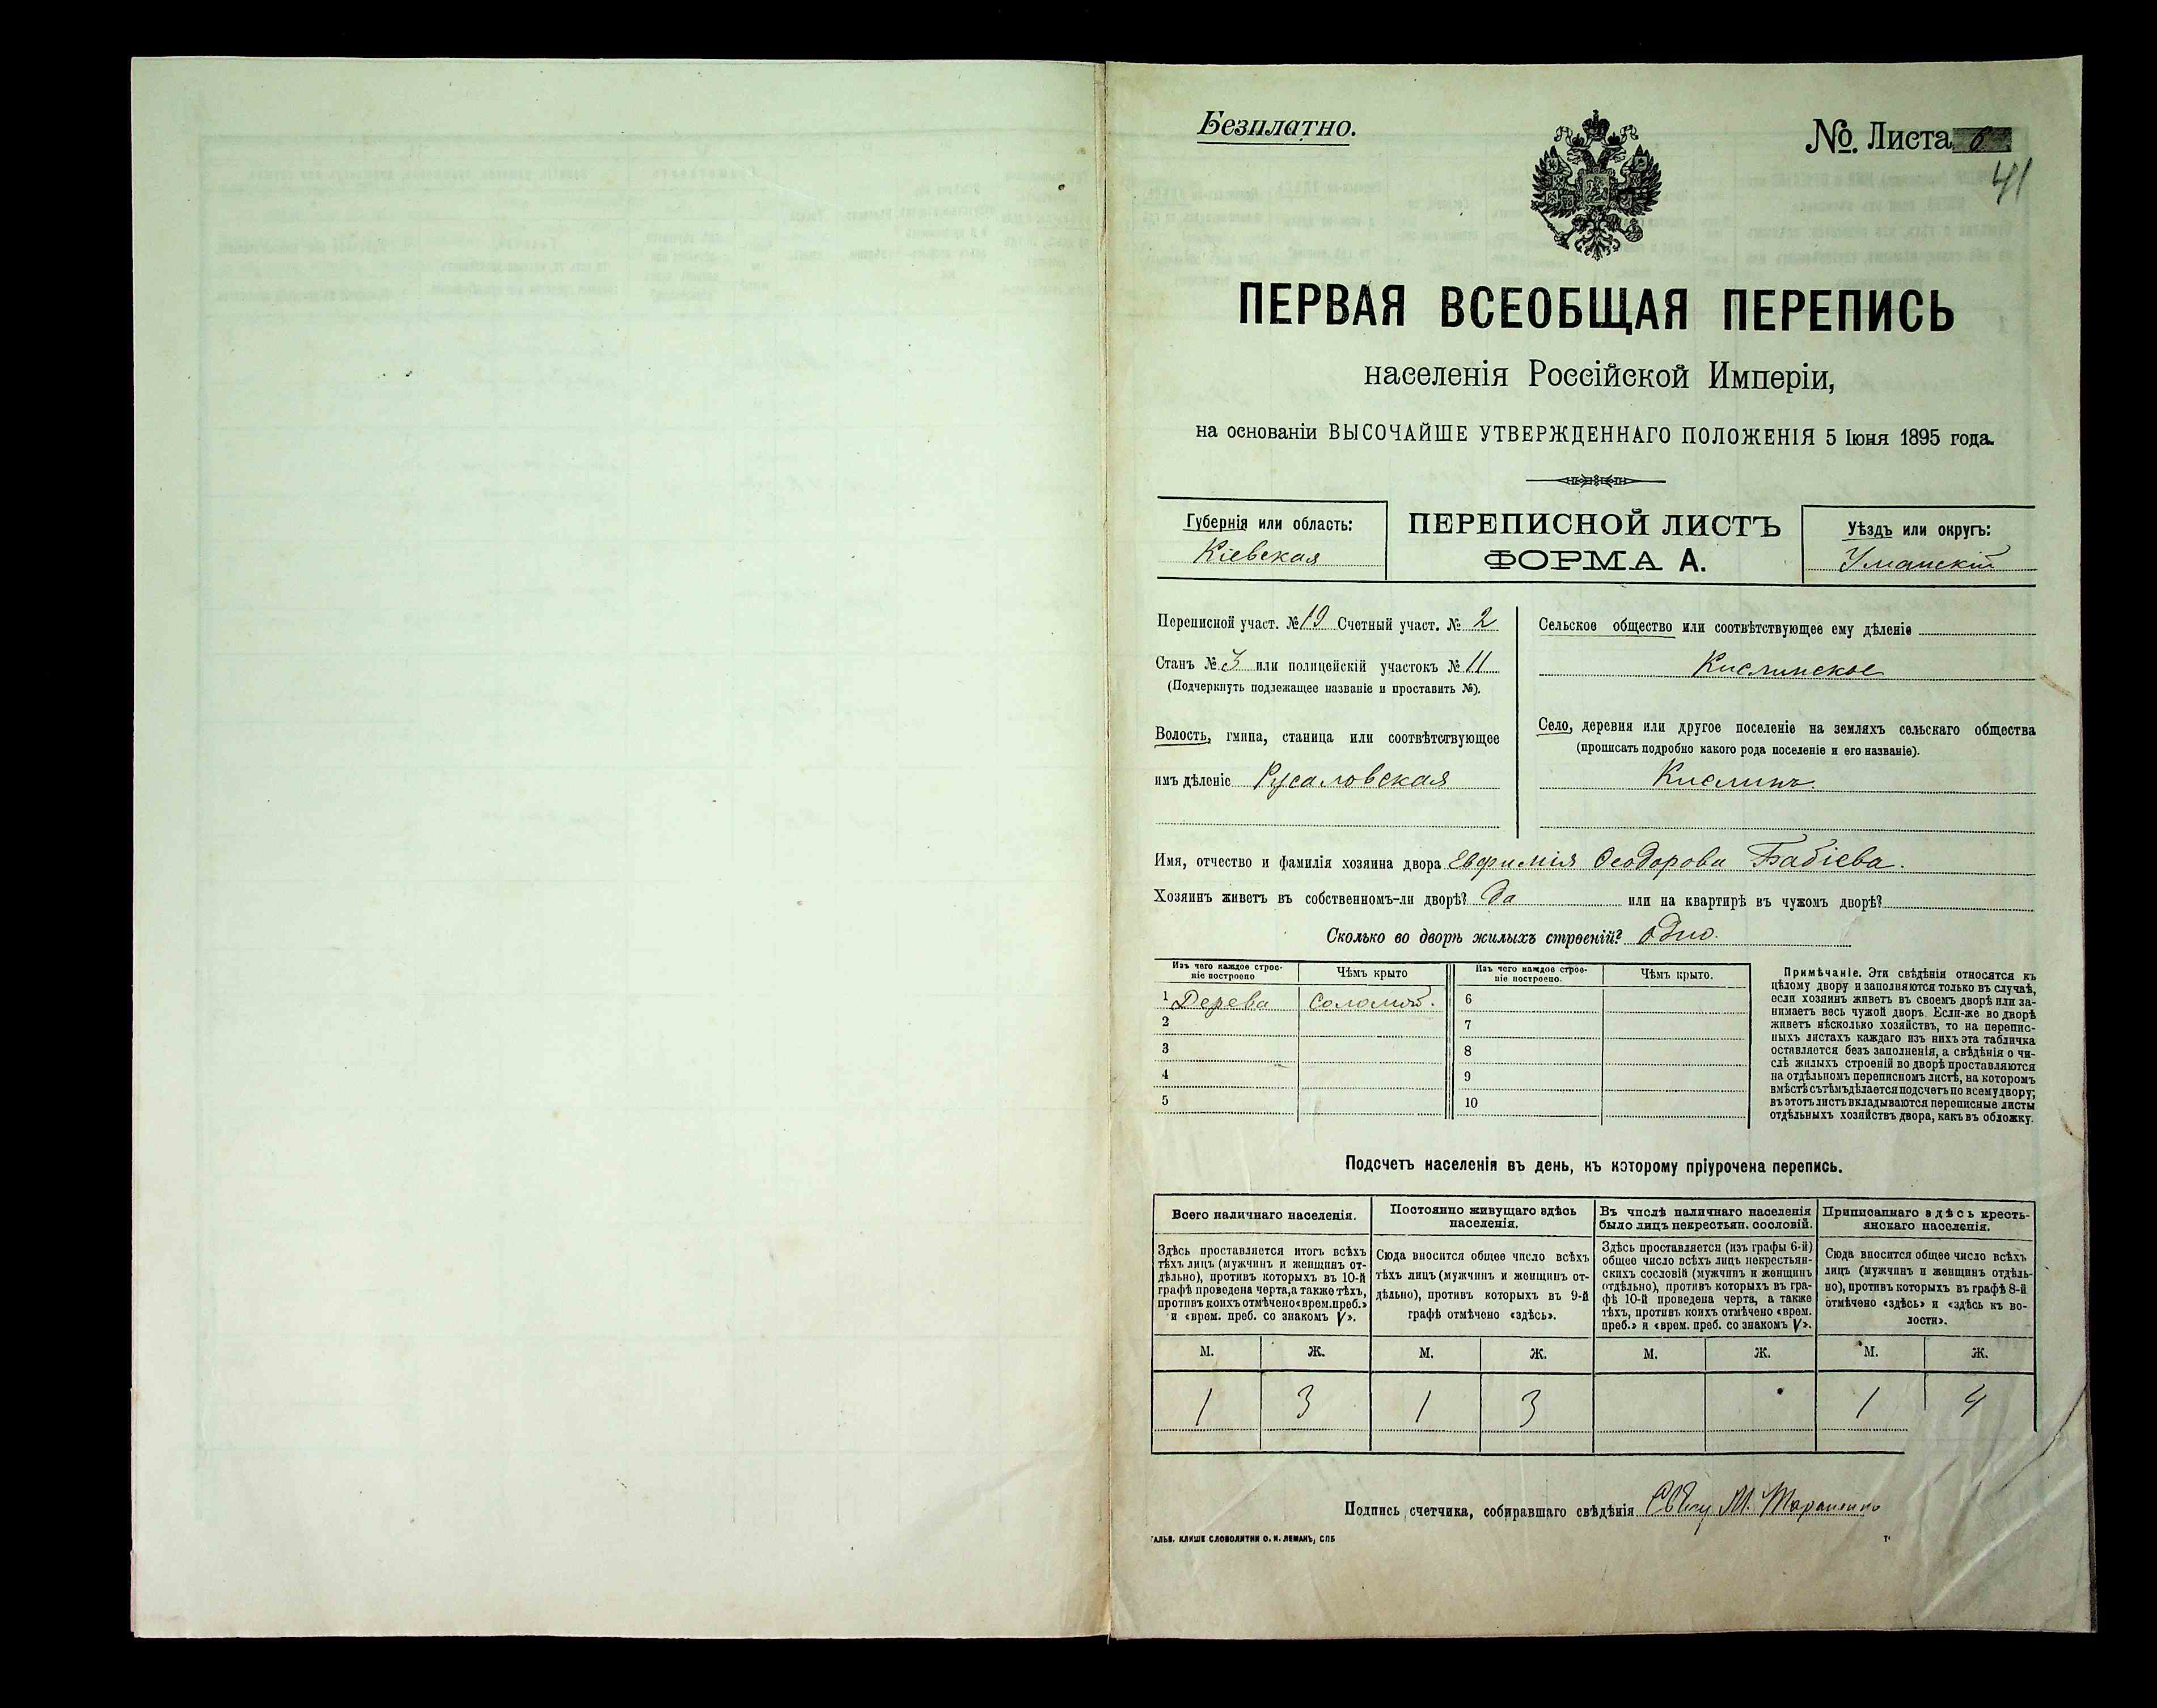 Безплатно.
№. Листа 6
41
ПЕРВАЯ ВСЕОБЩАЯ ПЕРЕПИСЬ
населенія Россійской Имперіи,
на основаніи ВЫСОЧАЙШЕ УТВЕРЖДЕННАГО ПОЛОЖЕНІЯ 5 Іюня 1895 года.
Губернія или область:
Кіевская
ПЕРЕПИСНОЙ ЛИСТЪ
ФОРМА А.
Уѣздъ или округъ:
Уманскій
Переписной участ. № 19 Счетный участ. № 2
Станъ № 3 или полицейскій участокъ № 11
(Подчеркнуть подлежащее названіе и проставить №).
Волость, гмина, станица или соотвѣтствующее
имъ дѣленіе Русаловская
Сельское общество или соотвѣтствующее ему дѣленіе
Кислинское
Село, деревня или другое поселеніе на земляхъ сельскаго общества
(прописать подробно какого рода поселеніе и его названіе).
Кислинъ.
Имя, отчество и фамилія хозяина двора Евфимія Ѳеодорова Бабіева.
Хозяинъ живетъ въ собственномъ-ли дворѣ? да или на квартирѣ въ чужомъ дворѣ?
Сколько во дворѣ жилыхъ строеній? одно.
Изъ чего каждое строе-
ніе построено
Чѣмъ крыто
Изъ чего каждое строе-
ніе построено.
Чѣмъ крыто.
1 Дерева Соломой. 6
2 7
3 8
4 9
5 10
Примѣчаніе. Эти свѣдѣнія относятся къ
цѣлому двору и заполняются только въ случаѣ,
если хозяинъ живетъ въ своемъ дворѣ или за-
нимаетъ весь чужой дворъ. Если-же во дворѣ
живетъ нѣсколько хозяйствъ, то на перепис-
ныхъ листахъ каждаго изъ нихъ эта табличка
оставляется безъ заполненія, а свѣдѣнія о чи-
слѣ жилыхъ строеній во дворѣ проставляются
на отдѣльномъ переписномъ листѣ, на которомъ
вмѣстѣ съ тѣмъ дѣлается подсчетъ по всему двору;
въ этотъ листъ вкладываются переписные листы
отдѣльныхъ хозяйствъ двора, какъ въ обложку.
Подсчетъ населенія въ день, къ которому пріурочена перепись.
Всего наличнаго населенія.
Здѣсь проставляется итогъ всѣхъ
тѣхъ лицъ (мужчинъ и женщинъ от-
дѣльно), противъ которыхъ въ 10-й
графѣ проведена черта, а также тѣхъ,
противъ коихъ отмѣчено «врем. преб.»
и «врем. преб. со знакомъ V».
Постоянно живущаго здѣсь
населенія.
Сюда вносится общее число всѣхъ
тѣхъ лицъ (мужчинъ и женщинъ от-
дѣльно), противъ которыхъ въ 9-й
графѣ отмѣчено «здѣсь».
Въ числѣ наличнаго населенія
было лицъ некрестьян. сословій.
Здѣсь проставляется (изъ графы 6-й)
общее число всѣхъ лицъ некрестьян-
скихъ сословій (мужчинъ и женщинъ
отдѣльно), противъ которыхъ въ гра-
фѣ 10-й проведена черта, а также
тѣхъ, противъ коихъ отмѣчено «врем.
преб.» и «врем. преб. со знакомъ V».
Приписаннаго здѣсь кресть-
янскаго населенія.
Сюда вносится общее число всѣхъ
лицъ (мужчинъ и женщинъ отдѣль-
но), противъ которыхъ въ графѣ 8-й
отмѣчено «здѣсь» и «здѣсь къ во-
лости».
М. Ж. М. Ж. М. Ж. М. Ж.
1 3 1 3 1 4
Подпись счетчика, собиравшаго свѣдѣнія М. Тараненко
ГАЛЬВ. КЛИШЕ СЛОВОЛИТНИ О. И. ЛЕМАНЪ, СПБ